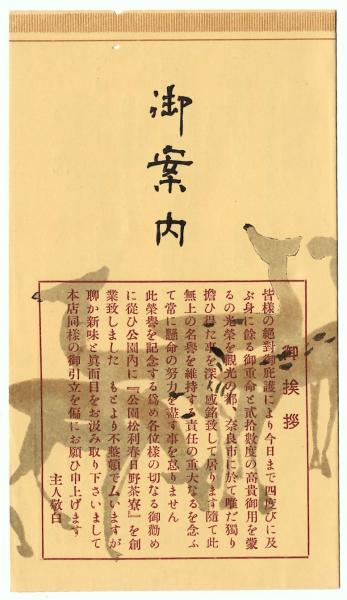 御案内
御挨拶
皆様の絕對御庇護により今日まで四度びに及
ぶ身に餘る御重命と貳拾數度の高貴御用を蒙
るの光榮を觀光の都、奈良市に於て唯だ獨り
擔ひ得た事を深く感銘致して居ります隨て此
無上の名譽を維持する責任の重大なるを念ふ
て常に懸命の努力を盡す事を怠りません
此榮譽を記念する爲め各位樣の切なる御勸め
に從ひ公園內に『公園松利春日野茶寮』を創
業致しました もとより不整頓でムいますが
聊か新味と眞面目をお汲み取り下さいまして
本店同樣の御引立を偏にお願ひ申上げます
主人敬白